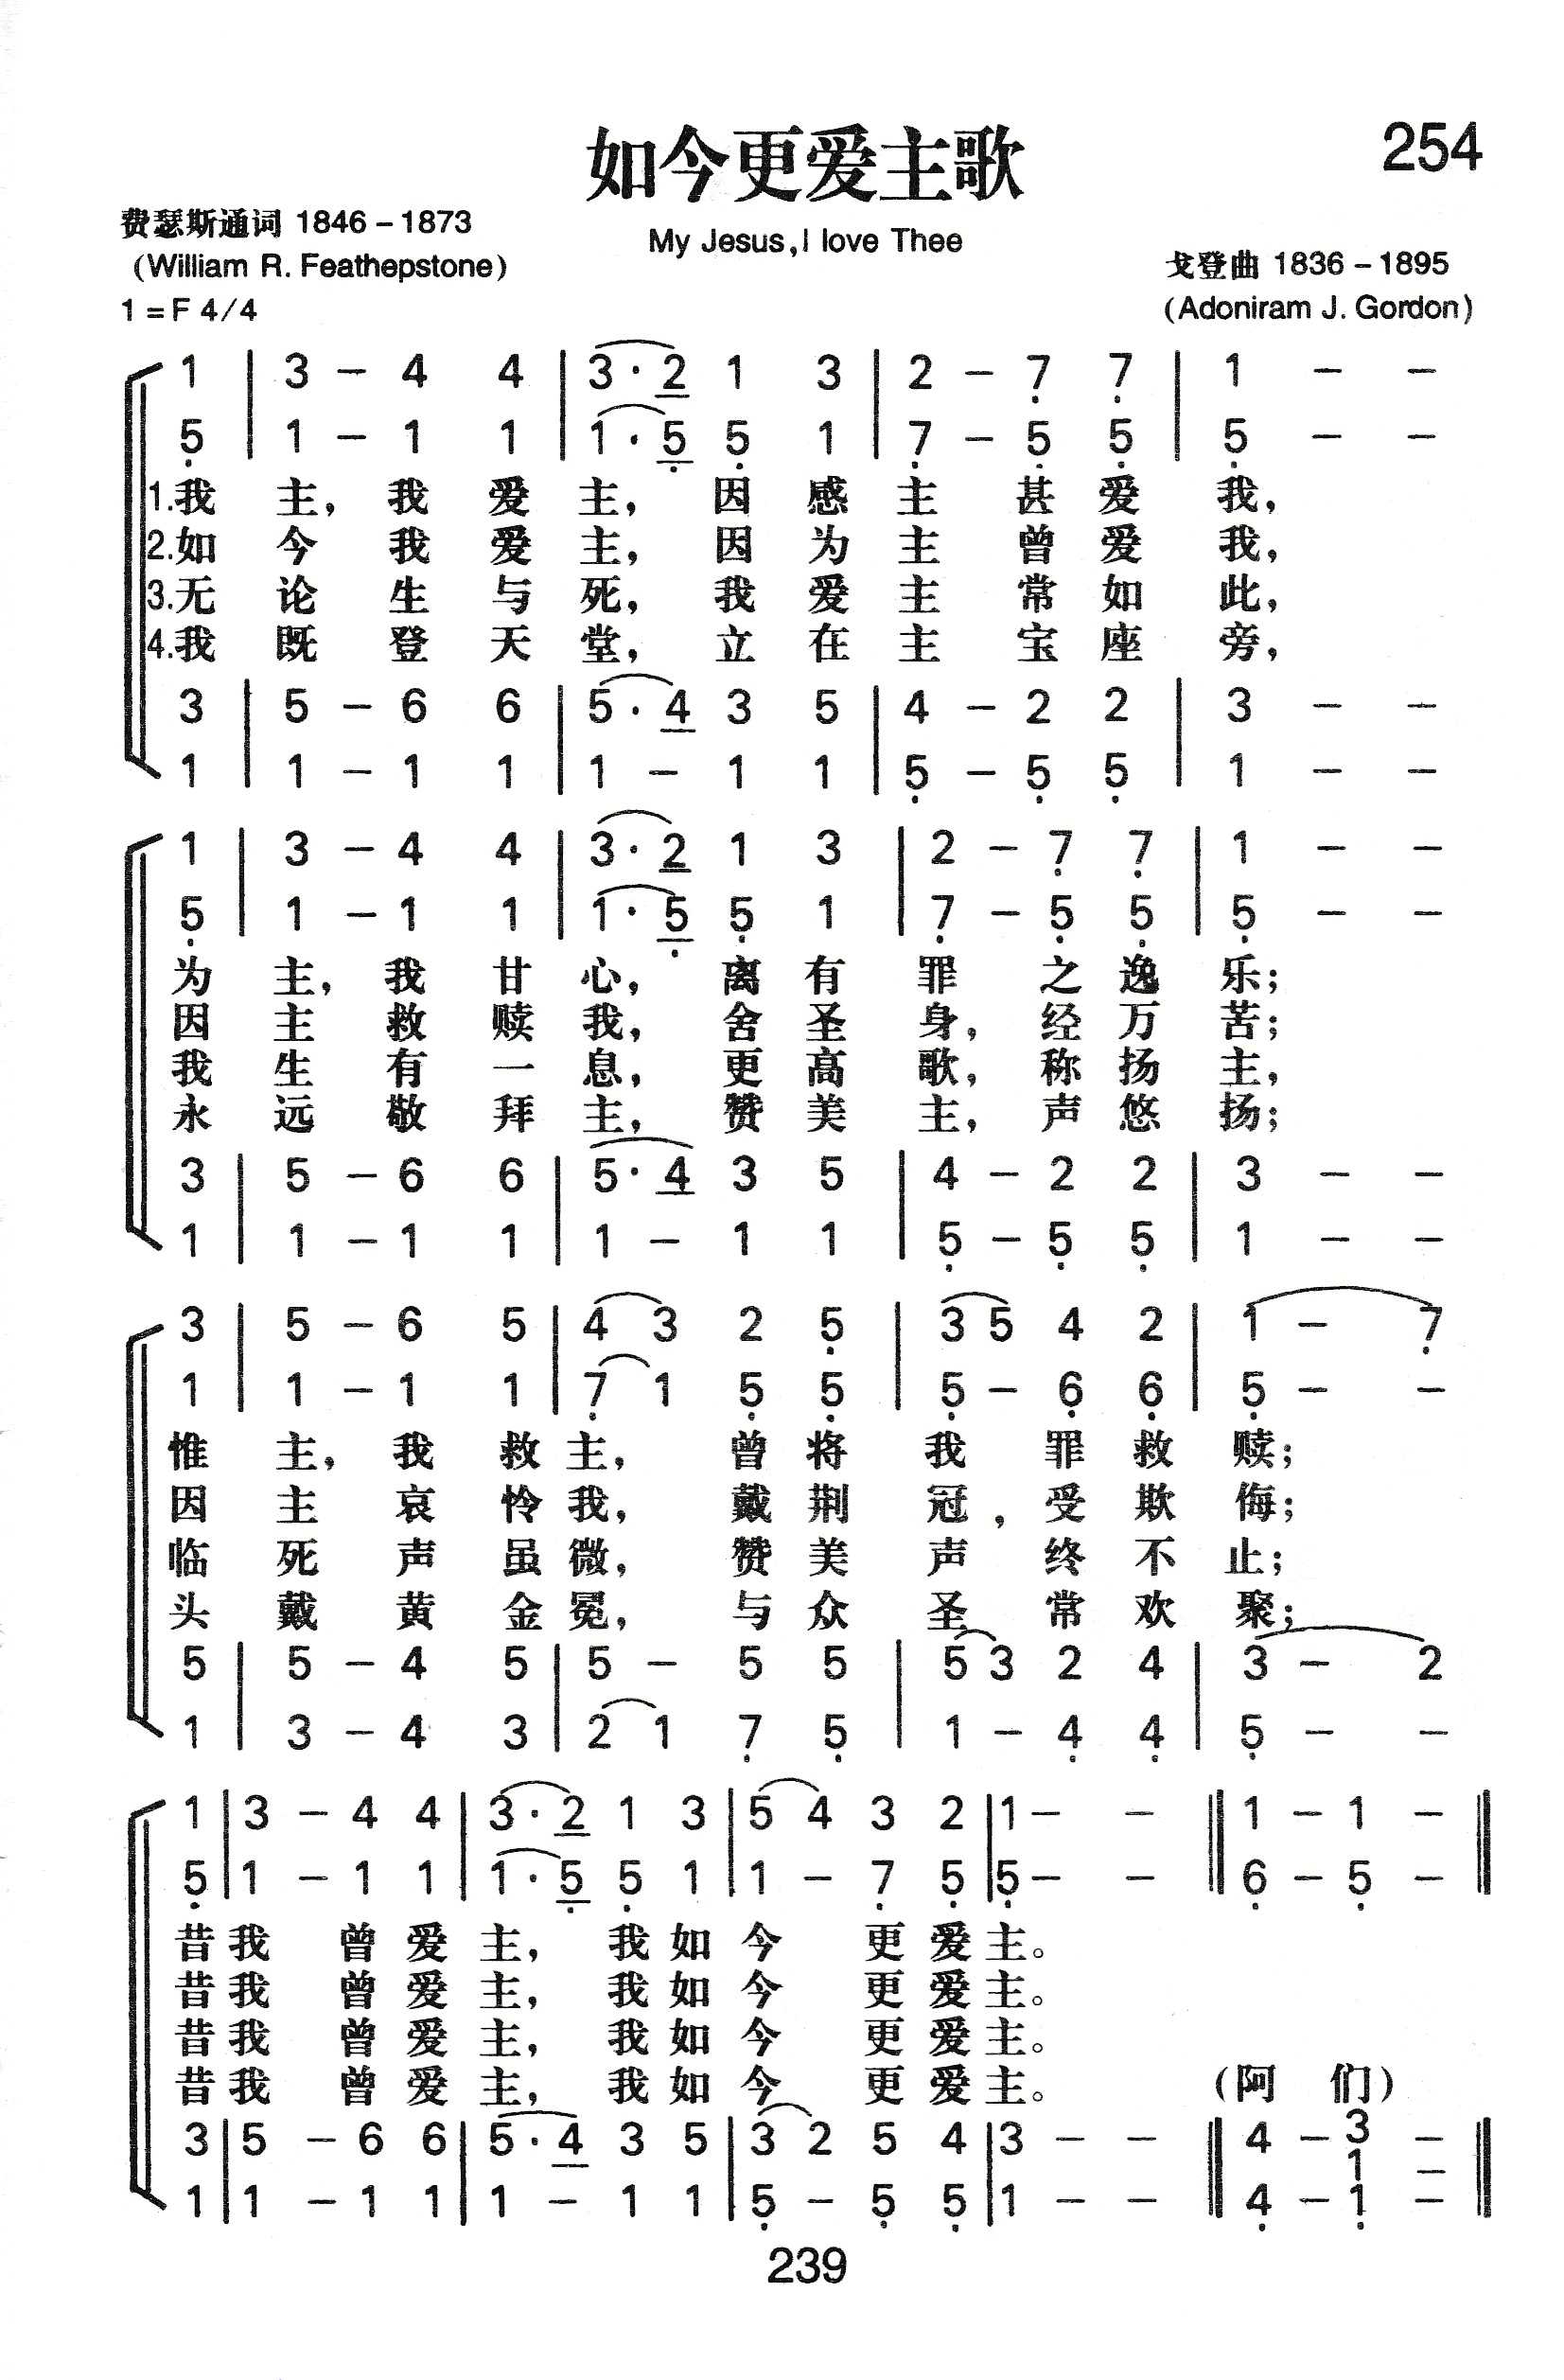 如今更爱主歌
254
费瑟斯通词 1846－1873
My Jesus,I love Thee
(William R. Feathepstone)
戈登曲 1836－1895
1＝F 4/4
(Adoniram J. Gordon)
1 | 3 － 4 4 | 3· 2 1 3 | 2 － 7̣ 7̣ | 1 － －
5̣ | 1 － 1 1 | 1· 5̣ 5̣ 1 | 7̣ － 5̣ 5̣ | 5̣ － －
1.我 主，我 爱 主，因 感 主 甚 爱 我，
2.如 今 我 爱 主，因 为 主 曾 爱 我，
3.无 论 生 与 死，我 爱 主 常 如 此，
4.我 既 登 天 堂，立 在 主 宝 座 旁，
3 | 5 － 6 6 | 5· 4 3 5 | 4 － 2 2 | 3 － －
1 | 1 － 1 1 | 1 － 1 1 | 5̣ － 5̣ 5̣ | 1 － －
1 | 3 － 4 4 | 3· 2 1 3 | 2 － 7̣ 7̣ | 1 － －
5̣ | 1 － 1 1 | 1· 5̣ 5̣ 1 | 7̣ － 5̣ 5̣ | 5̣ － －
为 主，我 甘 心，离 有 罪 之 逸 乐；
因 主 救 赎 我，舍 圣 身，经 万 苦；
我 生 有 一 息，更 高 歌，称 扬 主，
永 远 敬 拜 主，赞 美 主，声 悠 扬；
3 | 5 － 6 6 | 5· 4 3 5 | 4 － 2 2 | 3 － －
1 | 1 － 1 1 | 1 － 1 1 | 5̣ － 5̣ 5̣ | 1 － －
3 | 5 － 6 5 | 4 3 2 5̣ | 3 5 4 2 | 1 － 7̣
1 | 1 － 1 1 | 7̣ 1 5̣ 5̣ | 5̣ － 6̣ 6̣ | 5̣ － －
惟 主，我 救 主，曾 将 我 罪 救 赎；
因 主 哀 怜 我，戴 荆 冠，受 欺 侮；
临 死 声 虽 微，赞 美 声 终 不 止；
头 戴 黄 金 冕，与 众 圣 常 欢 聚；
5 | 5 － 4 5 | 5 － 5 5 | 5 3 2 4 | 3 － 2
1 | 3 － 4 3 | 2 1 7̣ 5̣ | 1 － 4̣ 4̣ | 5̣ － －
1 | 3 － 4 4 | 3· 2 1 3 | 5 4 3 2 | 1 － － ‖ 1 － 1 － ‖
5̣ | 1 － 1 1 | 1· 5̣ 5̣ 1 | 1 － 7̣ 5̣ | 5̣ － － ‖ 6̣ － 5̣ － ‖
昔 我 曾 爱 主，我 如 今 更 爱 主。
昔 我 曾 爱 主，我 如 今 更 爱 主。
昔 我 曾 爱 主，我 如 今 更 爱 主。
昔 我 曾 爱 主，我 如 今 更 爱 主。 (阿 们)
3 | 5 － 6 6 | 5· 4 3 5 | 3 2 5 4 | 3 － － ‖ 4 － 3 － ‖
1 －
1 | 1 － 1 1 | 1 － 1 1 | 5̣ － 5̣ 5̣ | 1 － － ‖ 4̣ － 1̣ － ‖
239